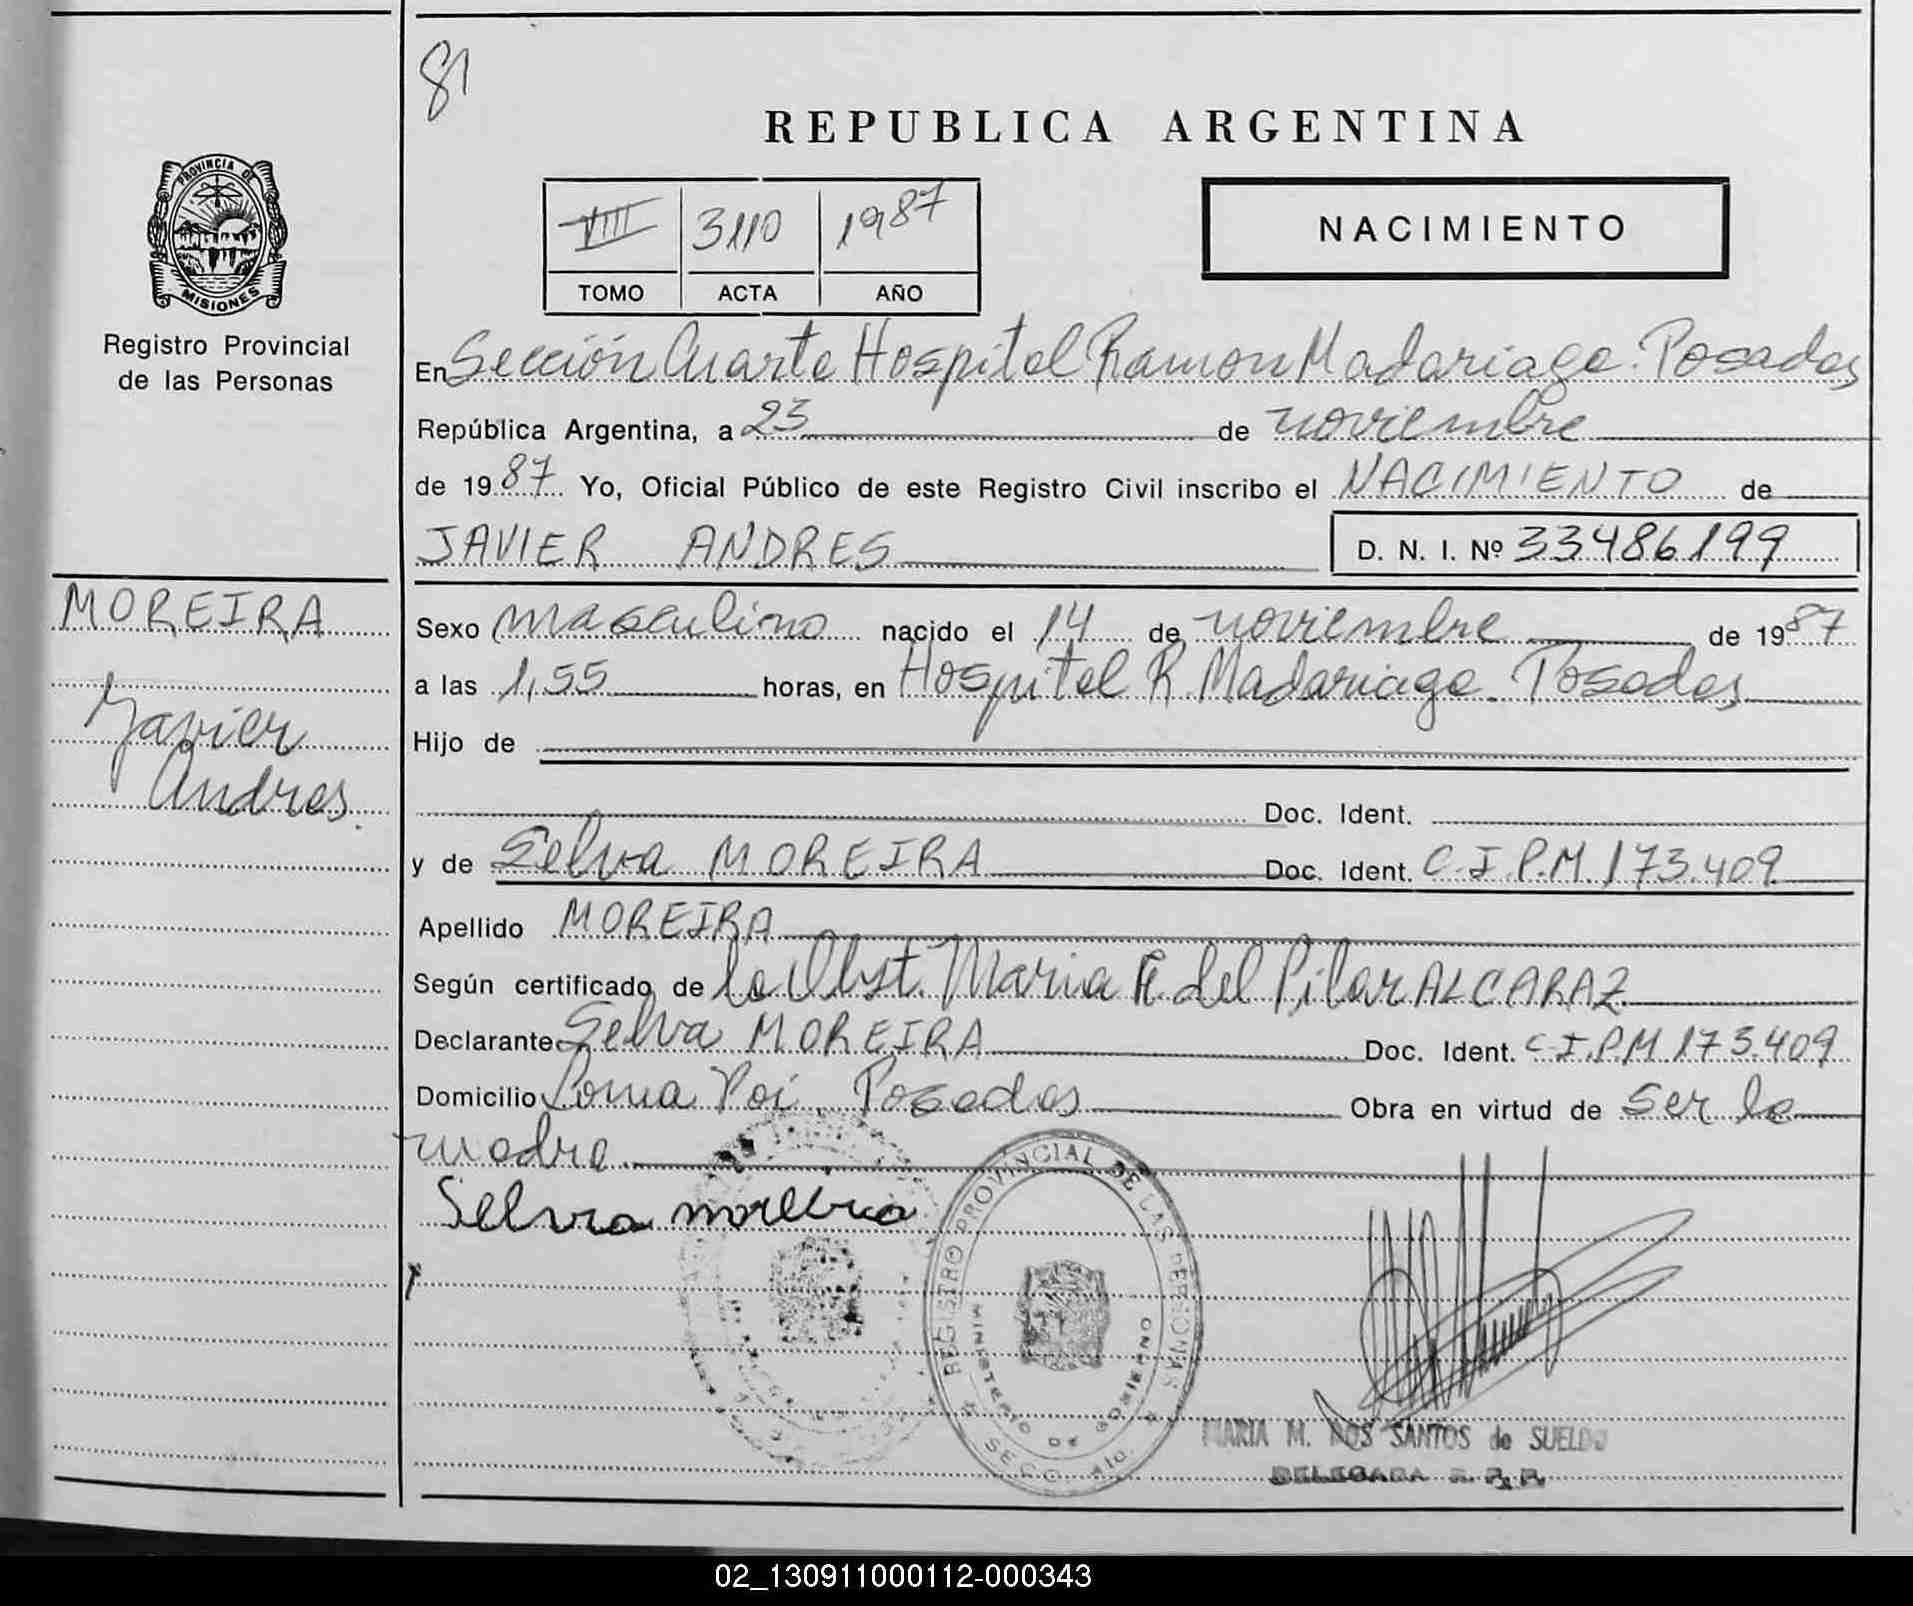 81
REPUBLICA ARGENTINA
VIII 3110 1987
TOMO ACTA AÑO
NACIMIENTO
PROVINCIA DE
MISIONES
Registro Provincial
de las Personas
En Sección Cuarta Hospital Ramon Madariaga. Posadas
República Argentina, a 23 de noviembre
de 1987 Yo, Oficial Público de este Registro Civil inscribo el NACIMIENTO de
JAVIER ANDRES D. N. I. Nº 33486199
MOREIRA
Javier
Andres.
Sexo masculino nacido el 14 de noviembre de 1987
a las 1,55 horas, en Hospital R. Madariaga. Posadas
Hijo de
Doc. Ident.
y de Selva MOREIRA Doc. Ident. C.I.P.M. 173.409
Apellido MOREIRA
Según certificado de la Obst. Maria del Pilar ALCARAZ
Declarante Selva MOREIRA Doc. Ident. C.I.P.M 173.409
Domicilio Loma Poi. Posadas Obra en virtud de ser la
madre
Selva moreira
REGISTRO PROVINCIAL DE LAS PERSONAS
MINISTERIO DE GOBIERNO
MARIA M. DOS SANTOS de SUELDO
DELEGADA R. P. P.
02_130911000112-000343